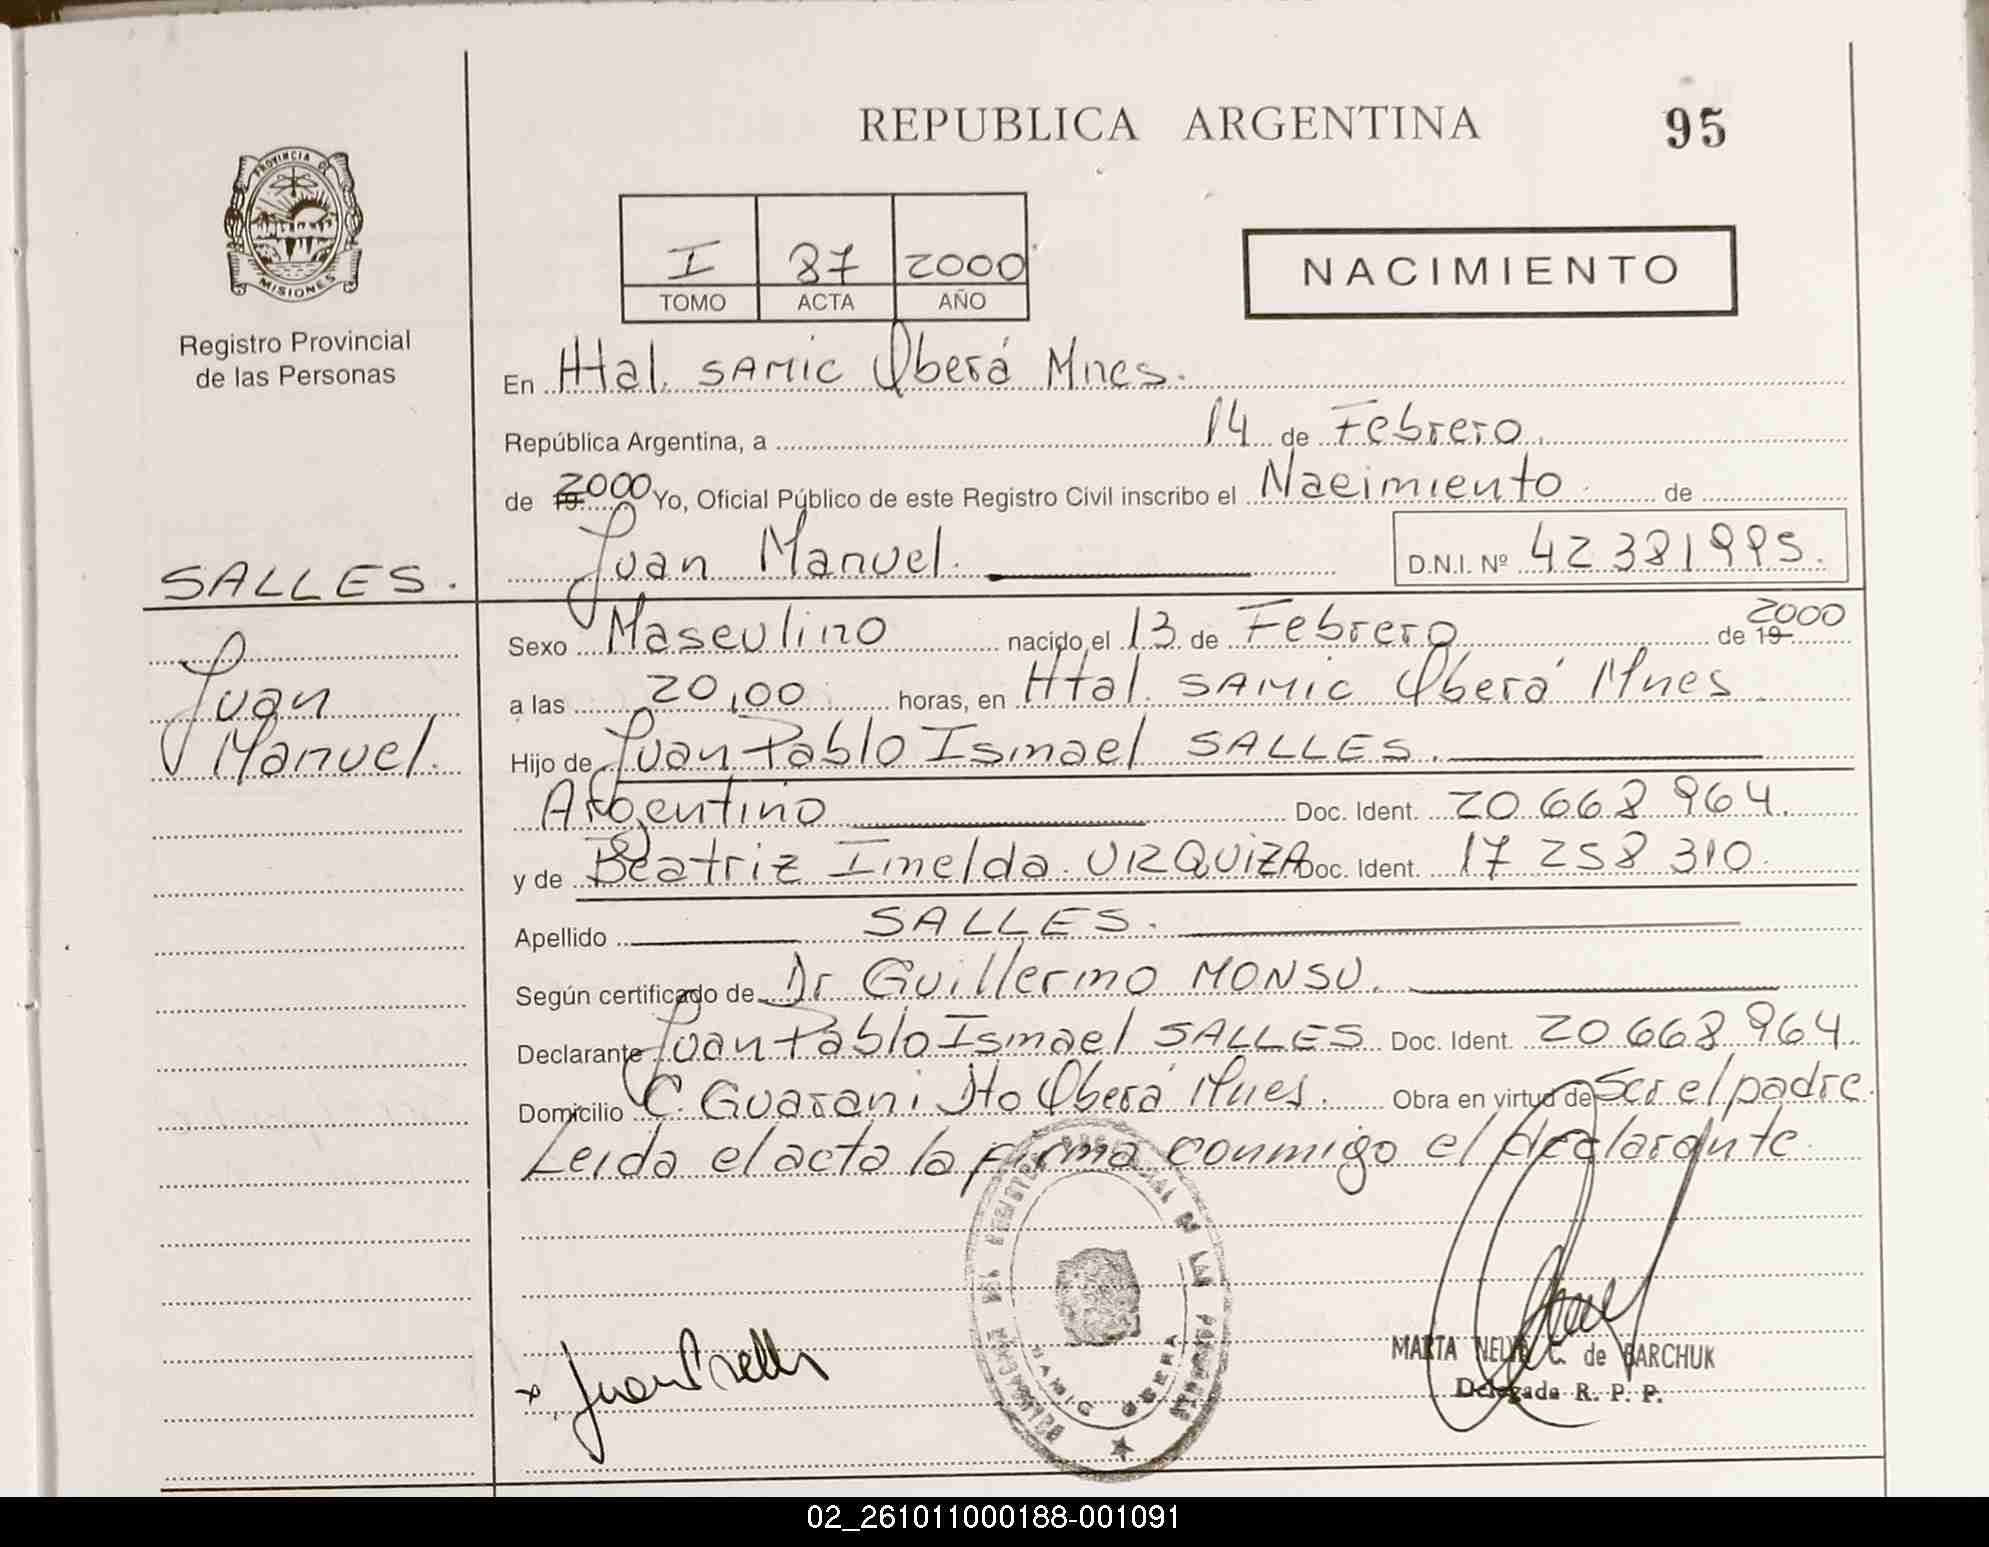 REPUBLICA ARGENTINA
95
PROVINCIA DE
MISIONES
Registro Provincial
de las Personas
I 87 2000
TOMO ACTA AÑO
NACIMIENTO
En Htal. SAMIC Oberá Mnes.
República Argentina, a 14 de Febrero
de 19 2000 Yo, Oficial Público de este Registro Civil inscribo el Nacimiento de
Juan Manuel. D.N.I. Nº 42 381995.
SALLES.
Juan
Manuel.
Sexo Masculino nacido el 13 de Febrero de 19 2000
a las 20,00 horas, en Htal. SAMIC Oberá Mnes
Hijo de Juan Pablo Ismael SALLES.
Argentino Doc. Ident. 20 668 964.
y de Beatriz Imelda URQUIZA Doc. Ident. 17 258 310.
Apellido SALLES.
Según certificado de Dr Guillermo MONSU.
Declarante Juan Pablo Ismael SALLES Doc. Ident. 20 668 964.
Domicilio C. Guarani Dto Oberá Mnes. Obra en virtud de Ser el padre.
Leida el acta la firma conmigo el declarante.
LAS
OBERA
MARTA NELYS C. de BARCHUK
Delegada R. P. P.
02_261011000188-001091